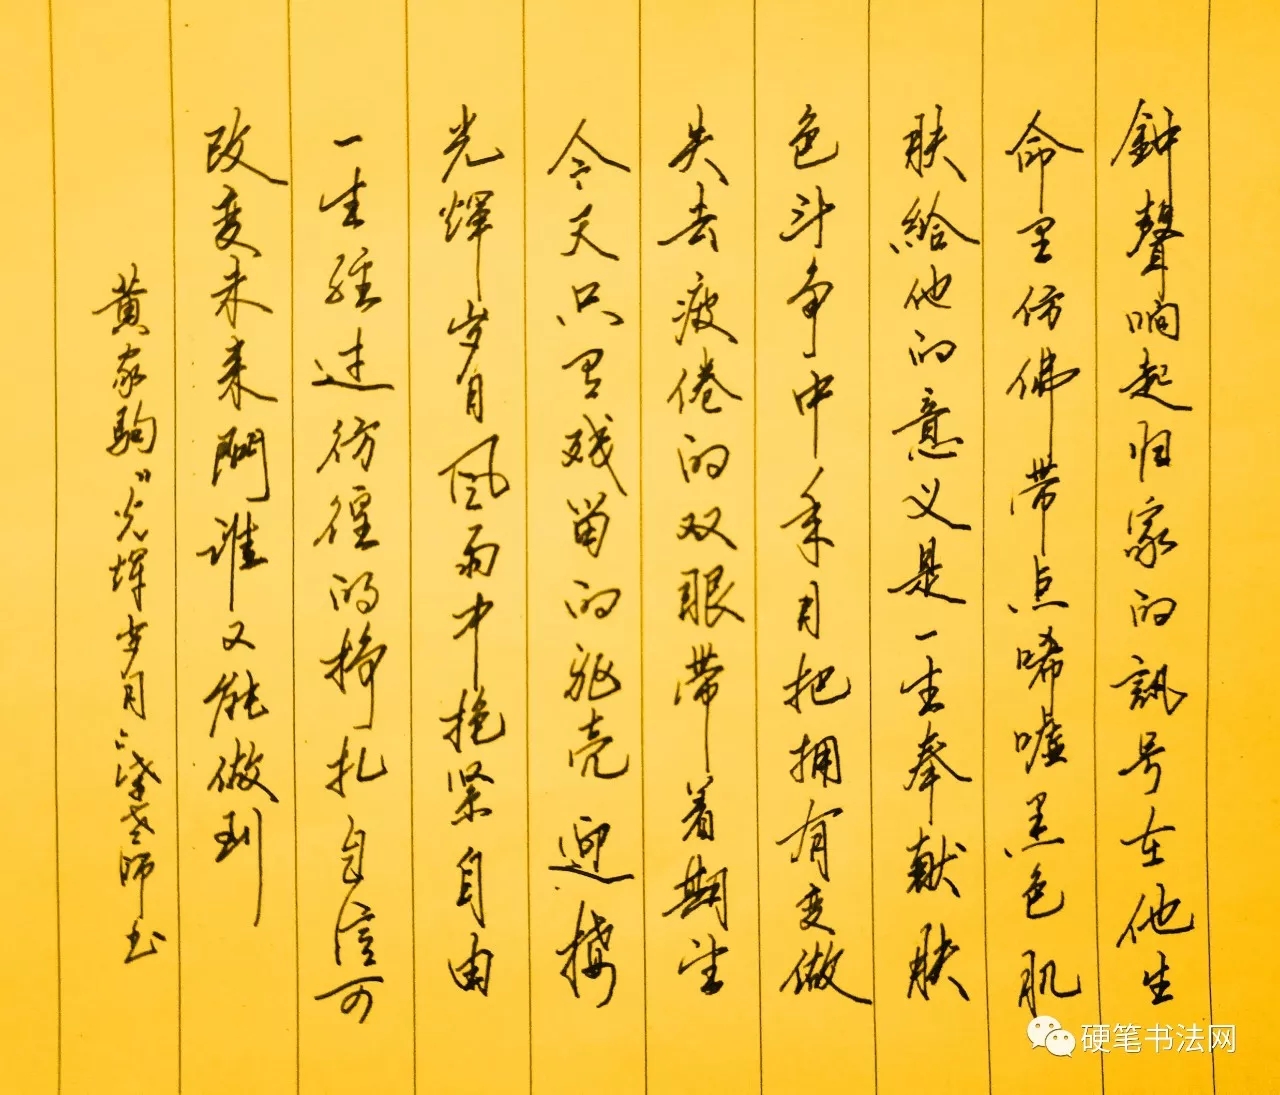 鈡聲响起归家的訊号在他生
命里仿佛带点唏嘘黑色肌
肤给他的意义是一生奉献肤
色斗争中年月把拥有变做
失去疲倦的双眼带着期望
今天只有残留的躯壳迎接
光辉岁月风雨中抱紧自由
一生经过彷徨的挣扎自信可
改变未来問谁又能做到
黄家驹“光辉岁月”老师书
硬笔书法网